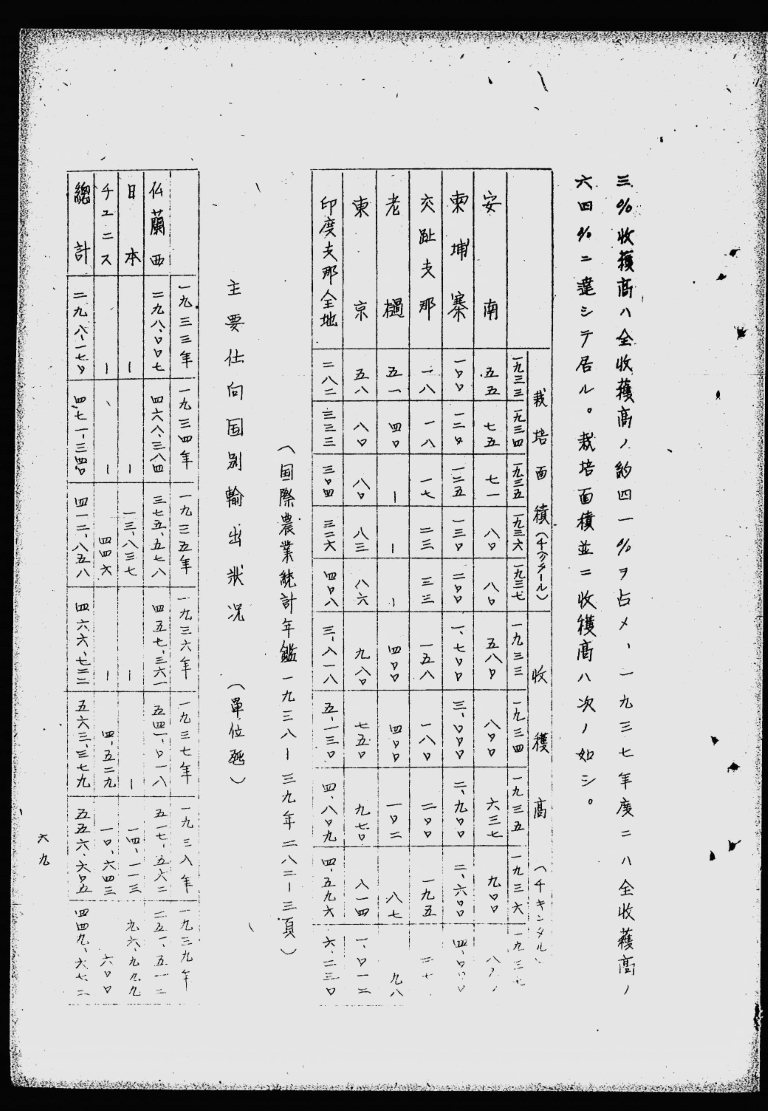 三%收獲高ハ全收獲高ノ約四一%ヲ占メ、一九三七年度ニハ全收獲高ノ
六四%ニ達シテ居ル。栽培面積並ニ收獲高ハ次ノ如シ。
栽培面積(千ヘクタール) 收獲高(千キンタル)
一九三三 一九三四 一九三五 一九三六 一九三七 一九三三 一九三四 一九三五 一九三六 一九三七
安南 五五 七五 七一 八〇 八〇 五八〇 八〇〇 六三七 九〇〇
柬埔寨 一〇〇 一二〇 一二五 一三〇 二〇〇 一、七〇〇 三、〇〇〇 二、九〇〇 二、六〇〇 四、〇〇〇
交趾支那 一八 一八 一七 二三 三三 一五八 一八〇 二〇〇 一九五
老檛 五一 四〇 ー ー ー 四〇〇 四〇〇 一〇二 八七 九八
東京 五八 八〇 八〇 八三 八六 九八〇 七五〇 九七〇 八一四 一、〇一二
印度支那全地 二八二 三三三 三〇四 三二六 四〇八 三、八一八 五、一三〇 四、八〇九 四、五九六 六、二三〇
(国際農業統計年鑑一九三八ー三九年二八二ー三頁)
主要仕向国別輸出狀況 (單位瓲)
一九三三年 一九三四年 一九三五年 一九三六年 一九三七年 一九三八年 一九三九年
仏蘭西 二九八、〇〇七 四六八、三八四 三七五、五七八 四五七、三六一 五四一、〇一八 五一七、五六二 二五一、五一二
日本 ー ー 一三、八三七 ー ー 一四、一一三 九六、九九九
チユニス ー 、 四四六 四、五二九 一〇、六四三 六〇〇
總計 二九八、一七〇 四七一、三四〇 四一二、八五八 四六六、七二二 五六三、三七九 五五六、六〇五 四四九、六七二
六九